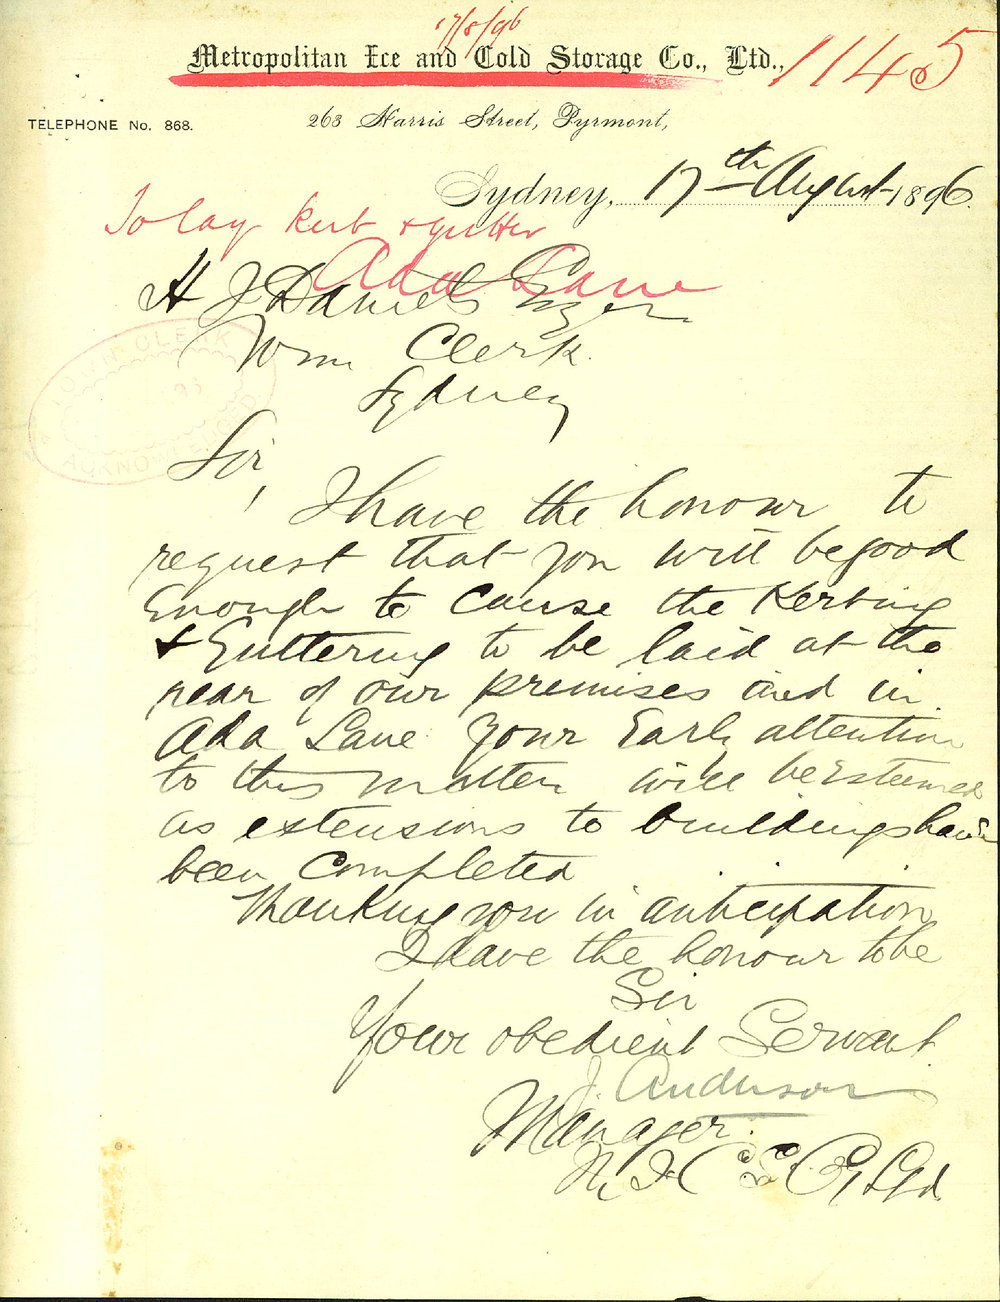 17/8/96
Metropolitan Ice and Cold Storage Co., Ltd.,
1145
TELEPHONE No. 868.
263 Harris Street, Pyrmont,
Sydney, 17th August 1896
To lay kerb & gutter
Ada Lane
H J Daniels Esqer
Town Clerk
Sydney
TOWN CLERK
ACKNOWLEDGED
Sir,
I have the honour to
request that you will be good
Enough to cause the Kerbing
& Guttering to be laid at the
rear of our premises and in
Ada Lane Your Early attention
to this matter will be Esteemed
as extensions to buildings have
been completed
Thanking you in anticipation
I have the honour to be
Sir
Your obedient Servant
J. Anderson
Manager.
M. I & C S Co Ltd.